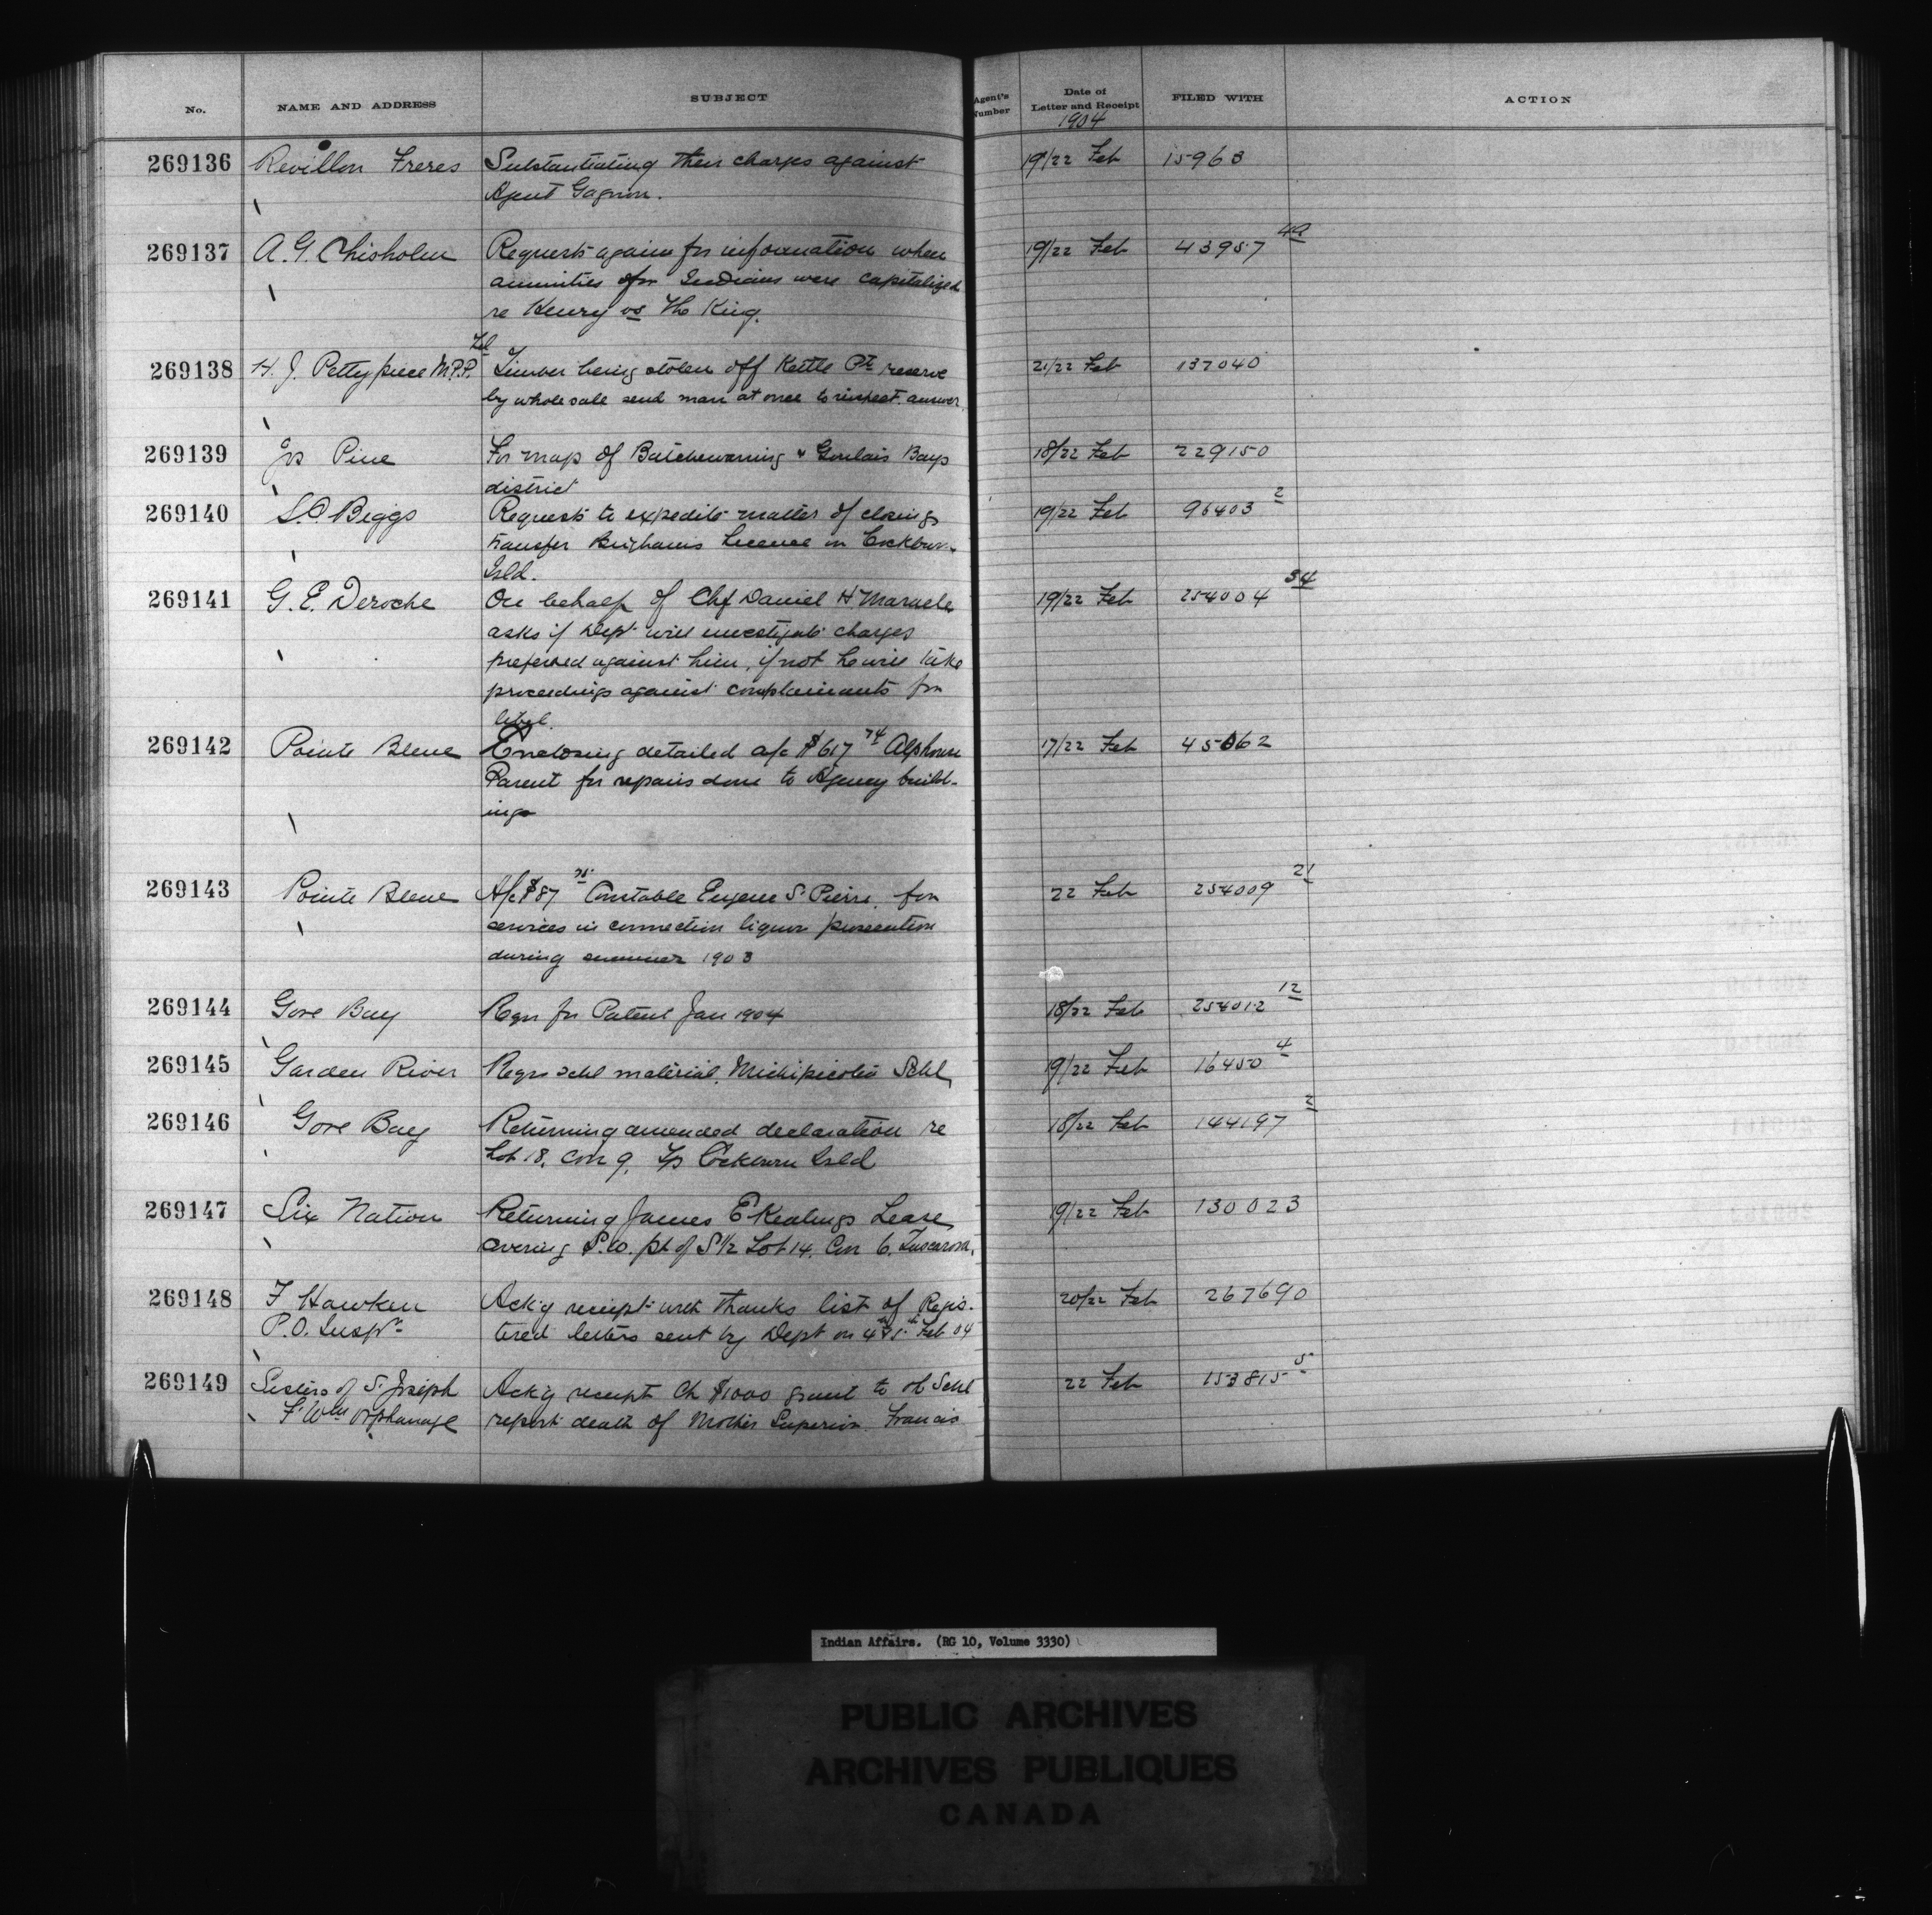 No. NAME AND ADDRESS SUBJECT Agent's Number Date of Letter and Receipt FILED WITH ACTION
1904
269136 Revillon Freres Substantiating their charges against 19/22 Feb 15963
Agent Gagnon.
269137 A. G. Chisholm Requests again for information when 19/22 Feb 43957 49
annuities for Indians were capitalized
re Henry vs The King.
269138 H. J. Pettypiece M.P.P. Tel Timber being stolen off Kettle Pt reserve 21/22 Feb 137040
by wholesale send man at once to inspect. answer
269139 Jos Pine For map of Batchewaning & Goulais Bays 18/22 Feb 229150
district
269140 S.O. Beggs Requests to expedite matter of closing 19/22 Feb 96403 2
transfer Brighams licence on Cockburn
Isld.
269141 G. E. Deroche On behalf of Chf Daniel H Maracle 19/22 Feb 254004 54
asks if Dept will investigate charges
preferred against him, if not he will take
proceedings against complainants for
libel.
269142 Pointe Bleue Enclosing detailed a/c $617 74 Alphonse 17/22 Feb 45062
Parent for repairs done to Agency build-
ings
269143 Pointe Bleue A/c $87 75 Constable Eugene St Pierre, for 22 Feb 254009 21
services in connection liquor prosecution
during summer 1903
269144 Gore Bay Reqn for Patent Jan 1904 18/22 Feb 254012 12
269145 Garden River Reqn schl material, Michipicoten Schl, 19/22 Feb 16450 4
269146 Gore Bay Returning amended declaration re 18/22 Feb 144197 2
Lot 18, Con 9, Tp Cockburn Isld
269147 Six Nation Returning James E Kealings Lease 19/22 Feb 130023
covering S.W. pt of S½ Lot 14. Con 6. Tuscarora,
269148 F Hawken Ack'g receipt with thanks list of Regis- 20/22 Feb 267690
P.O. Inspr tered letters sent by Dept on 4th & 5th Feb 04
269149 Sisters of St Joseph Ack'g receipt Ch $1000 grant to ol Schl 22 Feb 153815 5
Ft Wm Orphanage report death of Mother Superior Francis
Indian Affairs. (RG 10, Volume 3330)
PUBLIC ARCHIVES
ARCHIVES PUBLIQUES
CANADA